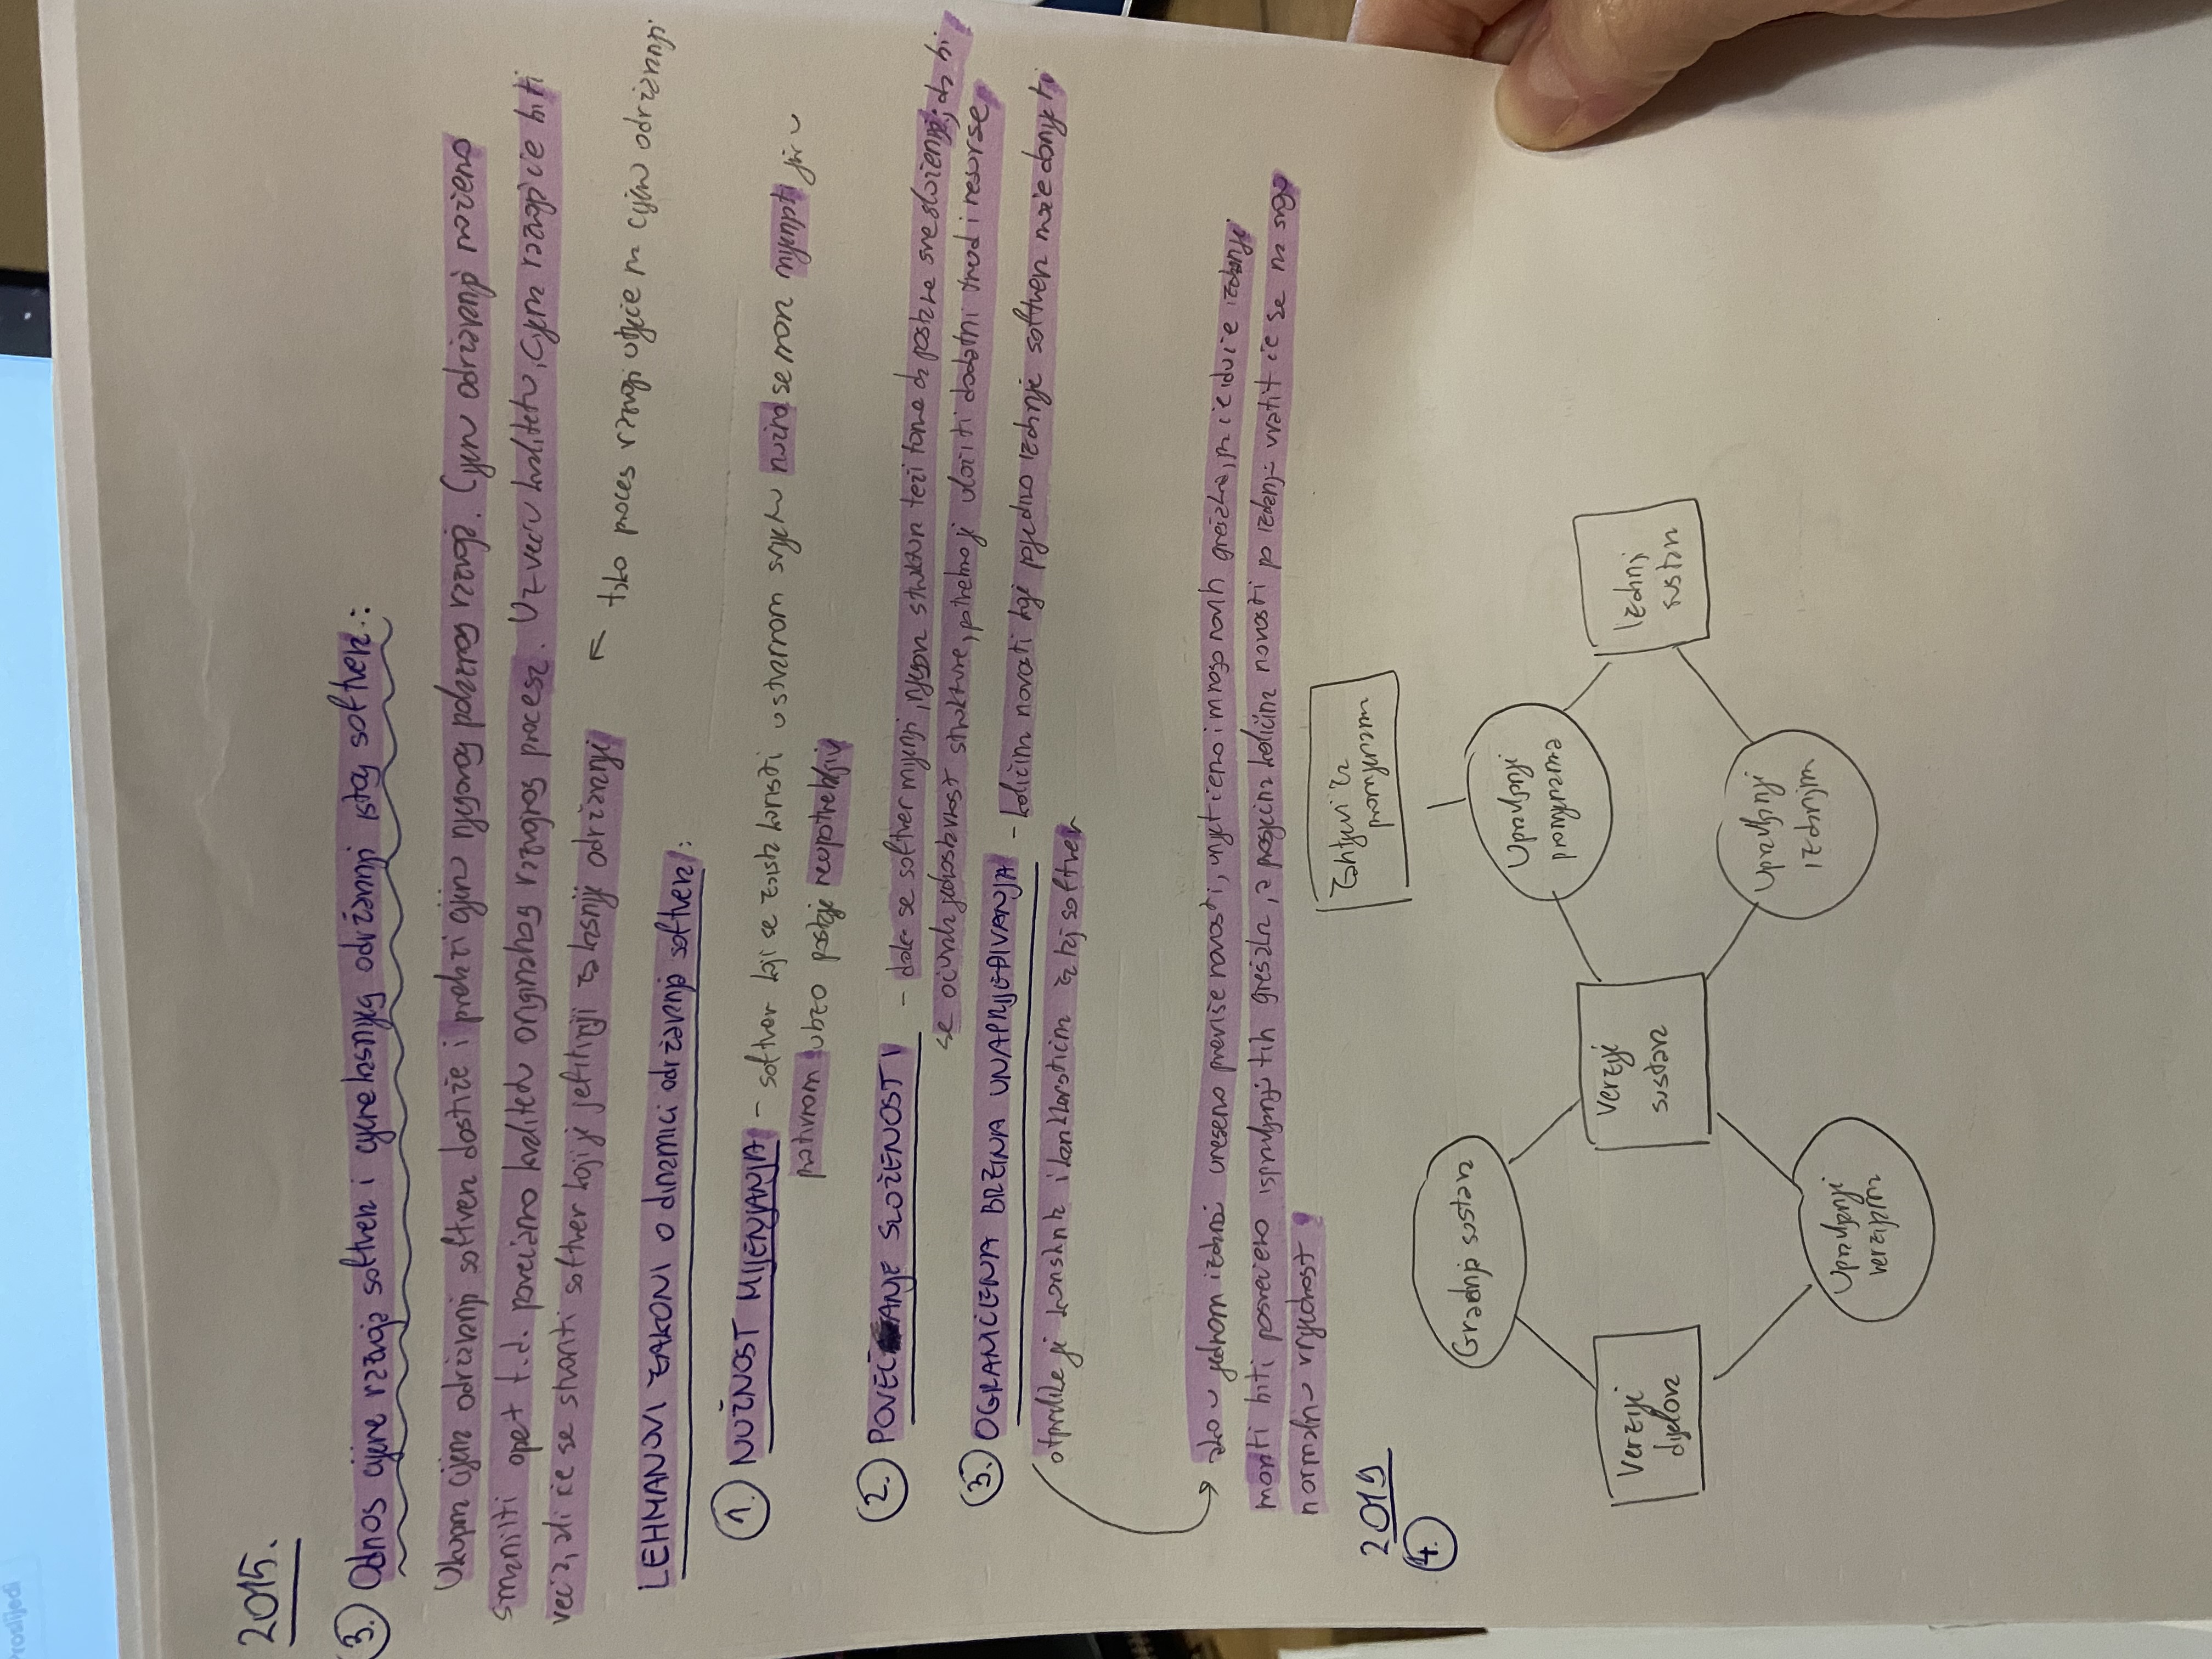 Proslijedi
2015.
3. Odnos cijene razvoja softvera i cijene kasnijeg održavanja istog softvera:
Ukupna cijena održavanja softvera dostiže i prelazi cijenu njegovog polaznog razvoja. Cijenu održavanja možemo
smanjiti opet t.d. povećamo kvalitetu originalnog razvojnog procesa. Uz veću kvalitetu, cijena razvoja će biti
veća, ali će se stvoriti softver koji je jeftiniji za kasnije održavanje
← tako proces razvoja utječe na cijenu održavanja
LEHMANOVI ZAKONI o dinamici održavanja softvera:
1. NUŽNOST MIJENJANJA - softver koji se zaista koristi u stvarnom svijetu nužno se mora mijenjati jer u
protivnom ubzo postaje neupotrebljiv
2. POVEĆANJE SLOŽENOSTI - dok se softver mijenja, njegova struktura teži tome da postane sve složenija; da bi
se očuvala jednostavnost strukture, potrebno je uložiti dodatni trud i resurse
3. OGRANIČENA BRZINA UNAPRIJEĐIVANJA - količina novosti koje pojedino izdanje softvera može donijeti
otprilike je konstanta i karakteristična za taj softver
→ ako u jednom izdanju uneseno previše novosti, unijet ćemo i mnogo novih grešaka, pa će iduće izdanje
morati biti posvećeno ispravljanju tih grešaka, a prosječna količina novosti po izdanju vratit će se na svoju
normalnu vrijednost
2019
4.
Zahtjevi za
promjenama
Gradnja sustava
Upravljanje
promjenama
Verzije
dijelova
Verzije
sustava
Izdanja
sustava
Upravljanje
izdanjima
Upravljanje
verzijama